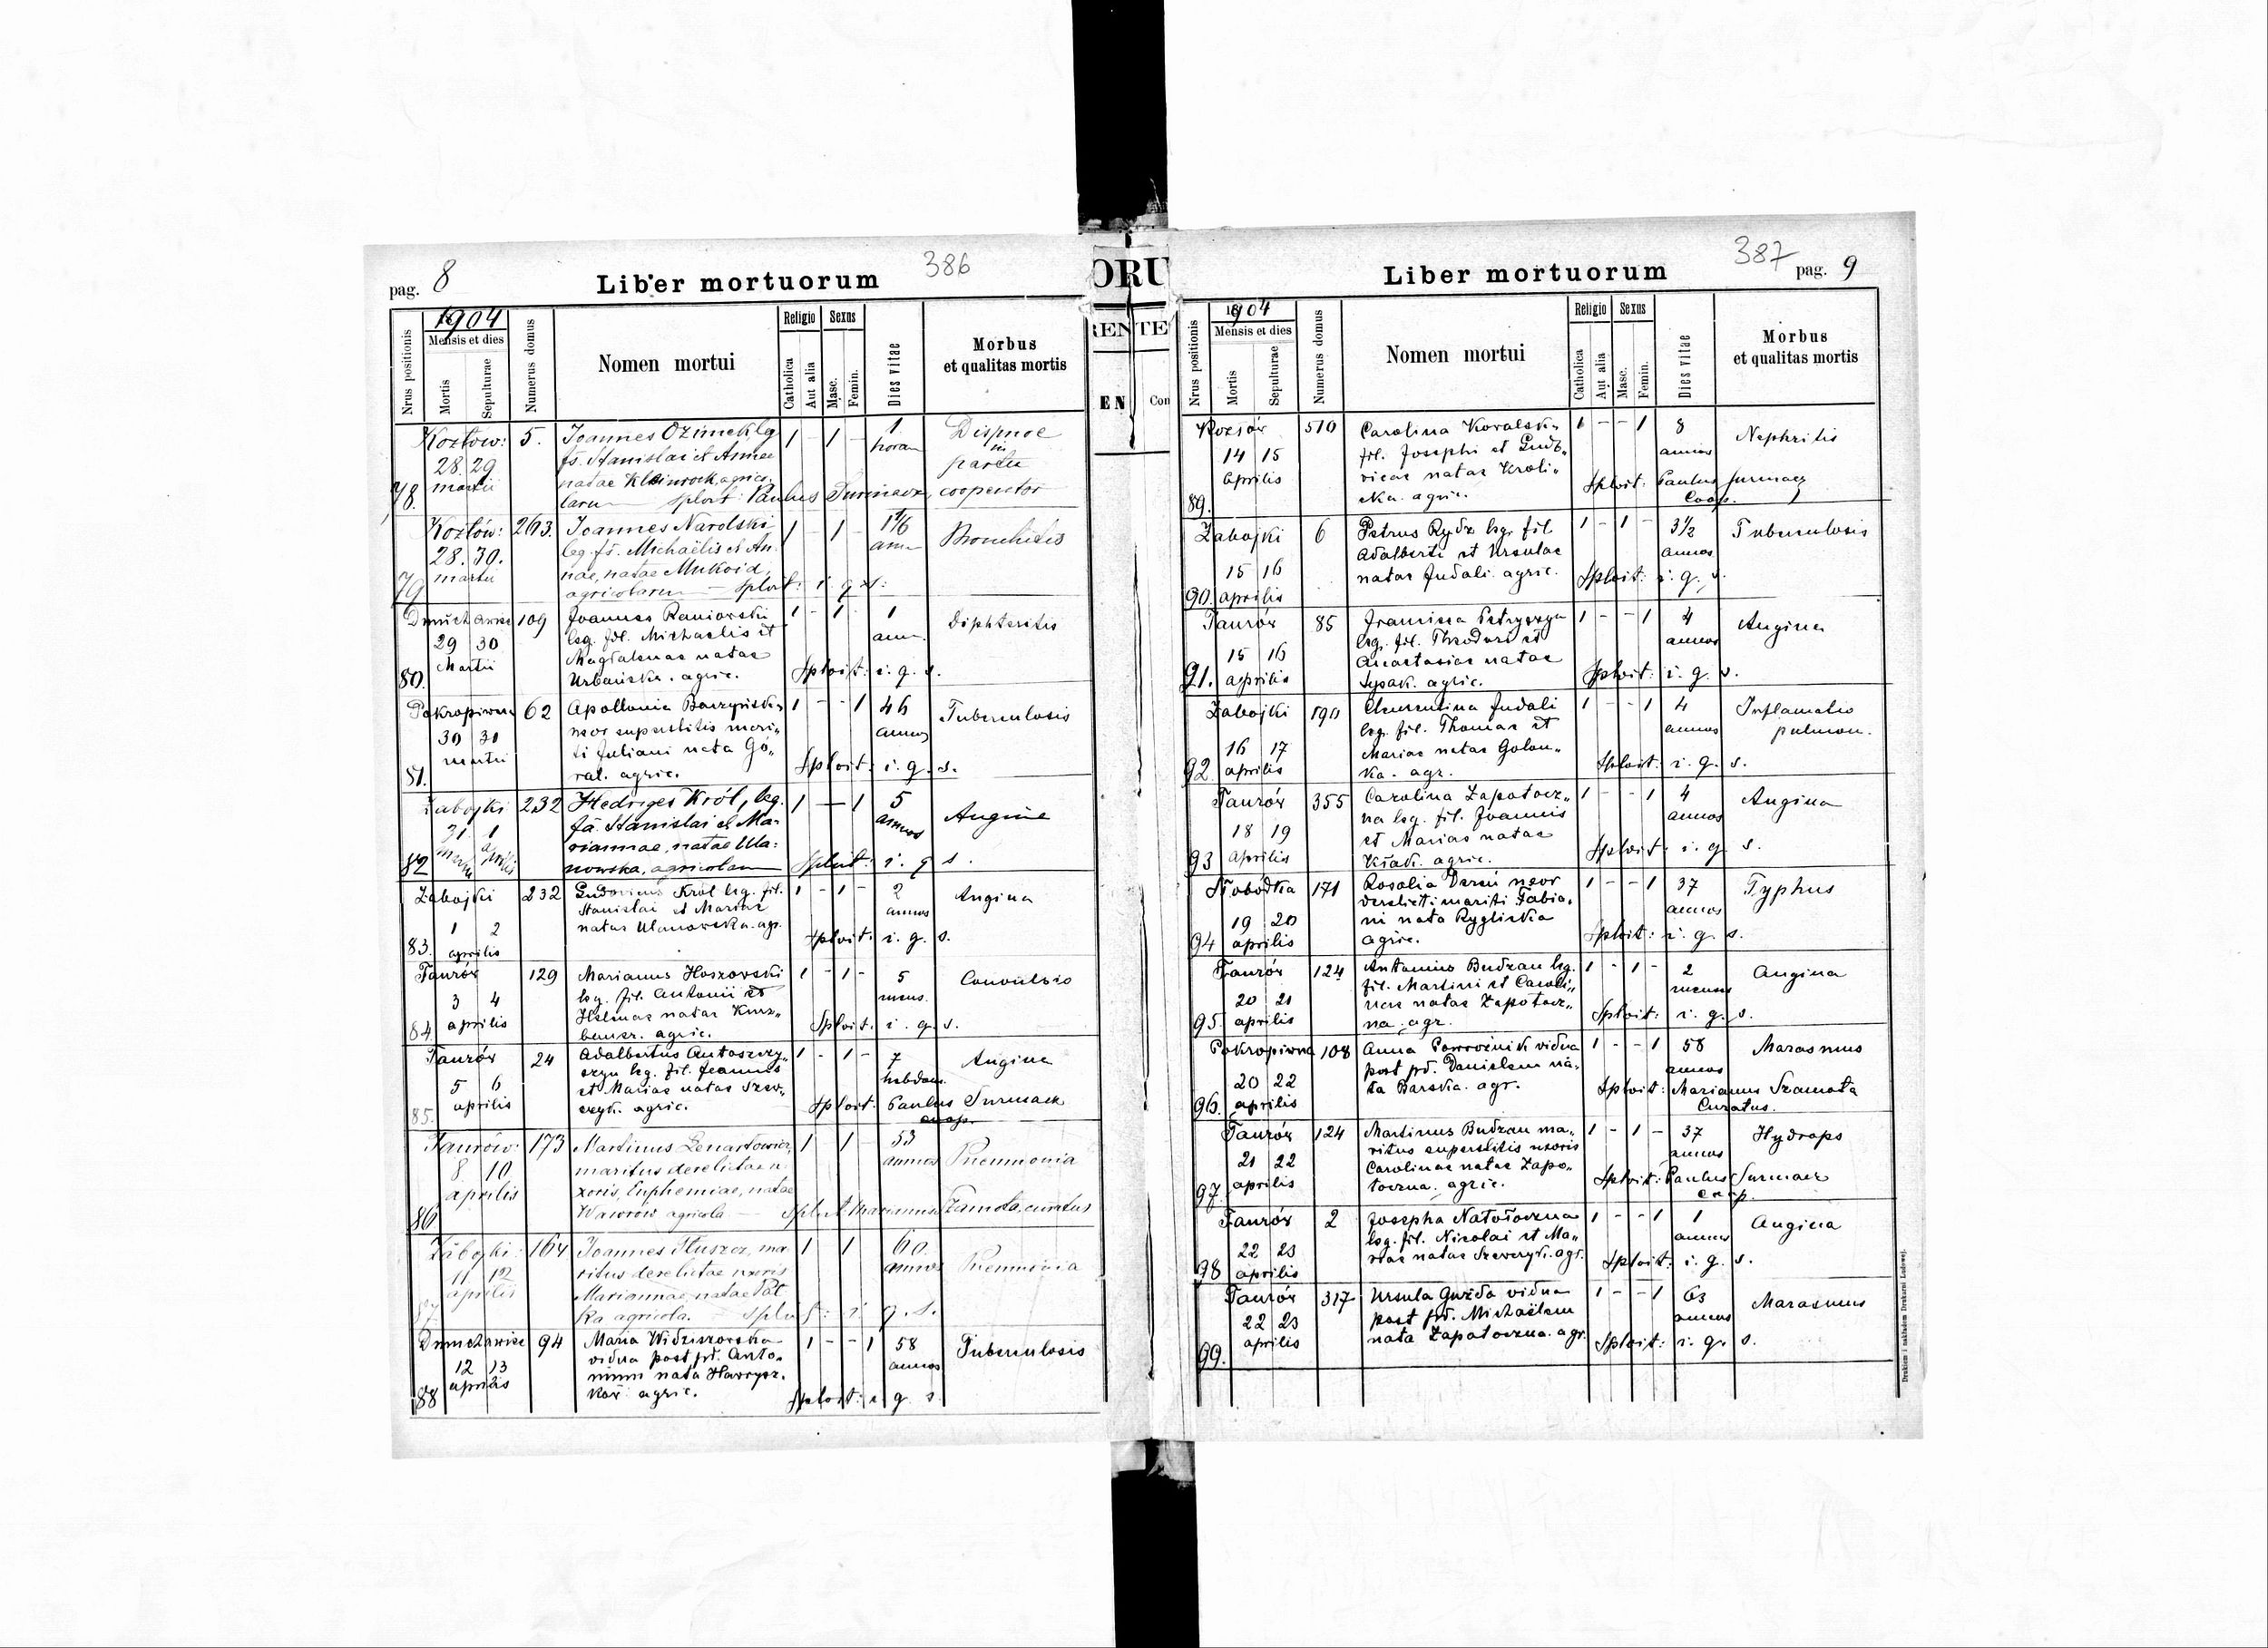 pag. 8
Liber mortuorum
386
Nrus positionis
1904
Mensis et dies
Mortis
Sepulturae
Numerus domus
Nomen mortui
Religio
Catholica
Aut alia
Sexus
Masc.
Femin.
Dies vitae
Morbus
et qualitas mortis
Kozłow: 5. Joannes Ozimek, leg 1 - 1 - 1 Dispnoe
28. 29 fs. Stanislai et Annae horam in
martii natae Kleinrock, agrico- partu
78. larum splvt: Paulus Surmacz, cooperator
Kozłów: 263. Joannes Narolski 1 - 1 - 1 1/6 Bronchitis
28. 30. leg. fs. Michaëlis et An- ann
martii nae, natae Mukoid,
79 agricolarum — splvt: i. g. s:
109 Joannes Raniowski 1 - 1 1 Diphteritis
29 30 leg. fil. Michaelis et ann.
Martii Magdalenae natae
80. Urbańska. agric. Splvit: i. g. s.
Pokropiwna 62 Apollonia 1 - - 1 46 Tuberculosis
30 30 uxor superstitis mari„ annos
martii ti Juliani nata Gó„
81. ral. agric. Splvit: i. g. s.
Zabojki 232 Hedviges Król, leg. 1 — 1 5 Angine
31 1 fa. Stanislai et Ma- annos
martii aprilis riannae, natae Ula-
82 nowska, agricolarum Splvit: i. g s.
Zabojki 232 Ludovicus Król leg. fil. 1 - 1 - 2 Angina
Stanislai et Mariae annos
1 2 natae Ulanowska. agr.
83. aprilis Splvit: i. g. s.
Taurów 129 Marianus Hoszowski 1 - 1 - 5 Convulsio
3 4 leg. fil. Antonii et mens.
84. aprilis Helenae natae
agric. Splvit: i. g. s.
Taurów 24 Adalbertus Antoszczy„ 1 - 1 - 7 Angina
5 6 szyn leg. fil. Joannis hebdom.
aprilis et Mariae natae Szew„
85. czyk. agric. Splvit: Paulus Surmacz
coop.
Taurów: 173 Martinus Lenartowicz, 1 1 53 Pneumonia
8 10 maritus derelictae u- annos
aprilis xoris, Euphemiae, natae
86 Wawrów agricola — Splvt Marianus Szamota, curatus
Zabojki: 164 Joannes Tłuszcz, ma- 1 1 60. Pneumonia
11 12 ritus derelictae uxoris annos
aprilis Mariannae, natae Pat
87 ka agricola. — splvt: i. g. s.
94 Maria Widziszowska 1 - - 1 58 Tuberculosis
12 13 vidua post pd. Anto„ annos
aprilis nium nata
88 agric. Splvit: i. g. s.
ORU
REN TE
EN Con
Liber mortuorum
387
pag. 9
Nrus positionis
1904
Mensis et dies
Mortis
Sepulturae
Numerus domus
Nomen mortui
Religio
Catholica
Aut alia
Sexus
Masc.
Femin.
Dies vitae
Morbus
et qualitas mortis
510 Carolina Kovalsk„ 1 - - 1 8 Nephritis
14 15 fil. Josephi et Ludo„ annos
aprilis vicae natae Kroli„
89. cka. agric. Splvit: Paulus Surmacz
Coop.
Zabojki 6 Petrus Rydz leg. fil. 1 - 1 - 3½ Tuberculosis
Adalberti et Ursulae annos
15 16 natae Judali. agric. Splvit: i. g. s.
90. aprilis
Taurów 85 Francisca Petryszyn 1 - - 1 4 Angina
15 16 leg. fil. Theodori et annos
aprilis Anastasiae natae
91. Sysak. agric. Splvit: i. g. s.
Zabojki 190 Clementina Judali 1 - - 1 4 Inflamatio
leg. fil. Thomae et annos pulmon.
16 17 Mariae natae Golon„
92. aprilis ka. agr. Splvit: i. g. s.
Taurów 355 Carolina Zapotocz„ 1 - - 1 4 Angina
18 19 na leg. fil. Joannis annos
aprilis et Mariae natae
93 agric. Splvit: i. g. s.
Słobódka 171 Rosalia uxor 1 - - 1 37 Typhus
derelicti mariti Fabia„ annos
19 20 ni nata Ryglicka
94 aprilis agric. Splvit: i. g. s.
Taurów 124 Antonius Budzan leg. 1 - 1 - 2 Angina
20 21 fil. Martini et Caroli„ menses
aprilis nae natae Zapotocz„
95. na. agr. Splvit: i. g. s.
Pokropiwna 108 Anna Powroźnik vidua 1 - - 1 58 Marasmus
20 22 post pd. Danielem na„ annos
96. aprilis ta Barska. agr. Splvit: Marianus Szamota
Curatus.
Taurów 124 Martinus Budzan ma„ 1 - 1 - 37 Hydrops
21 22 ritus superstitis uxoris annos
aprilis Carolinae natae Zapo„
97. toczna. agric. Splvit: Paulus Surmacz
coop.
Taurów 2 Josepha Natołoczna 1 - - 1 1 Angina
22 23 leg. fil. Nicolai et Ma„ annus
98 aprilis riae natae Szewczyk. agr. Splvit: i. g. s.
Taurów 317 Ursula Guzda vidua 1 - - 1 63 Marasmus
22 23 post pd. Michaëlem annos
aprilis nata Zapotoczna. agr. Splvit: i. g. s.
99.
Drukiem i nakładem Drukarni Ludowej.